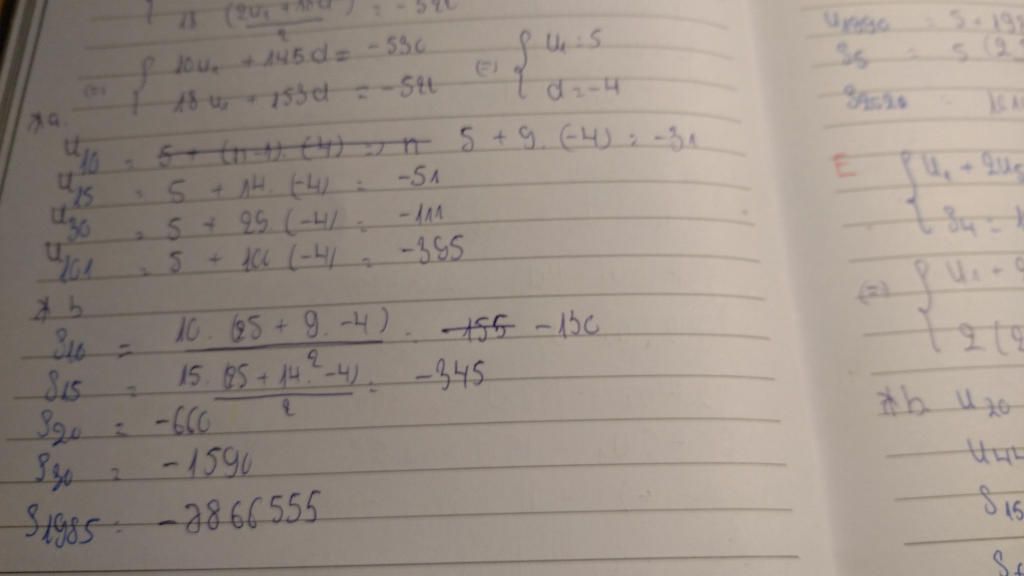 (=) { 10u₁ + 145d = -530 (=) { u₁ = 5
18u₁ + 153d = -522 d = -4
*a.
u10 = 5 + 9.(-4) = -31
u15 = 5 + 14.(-4) = -51
u30 = 5 + 29(-4) = -111
u101 = 5 + 100(-4) = -395
*b
S10 = 10.(25 + 9.-4) / 2 = -155 -130
S15 = 15.(25 + 14.-4) / 2 = -345
S20 = -660
S30 = -1590
S1985 = -7866555
u1990 = 5 + 198
S5 = 5(2.5
S2020 = 101
E { u₁ + 2u5
S4 = 1
(=) { u₁ +
2(2
*b. u20
u44
S15